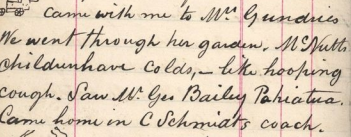 came with me to Mrs Gundries
We went through her garden, McNutts
children have colds, – like hooping
cough. Saw Mr Geo Bailey Pahiatua.
Came home in C Schmidts coach.